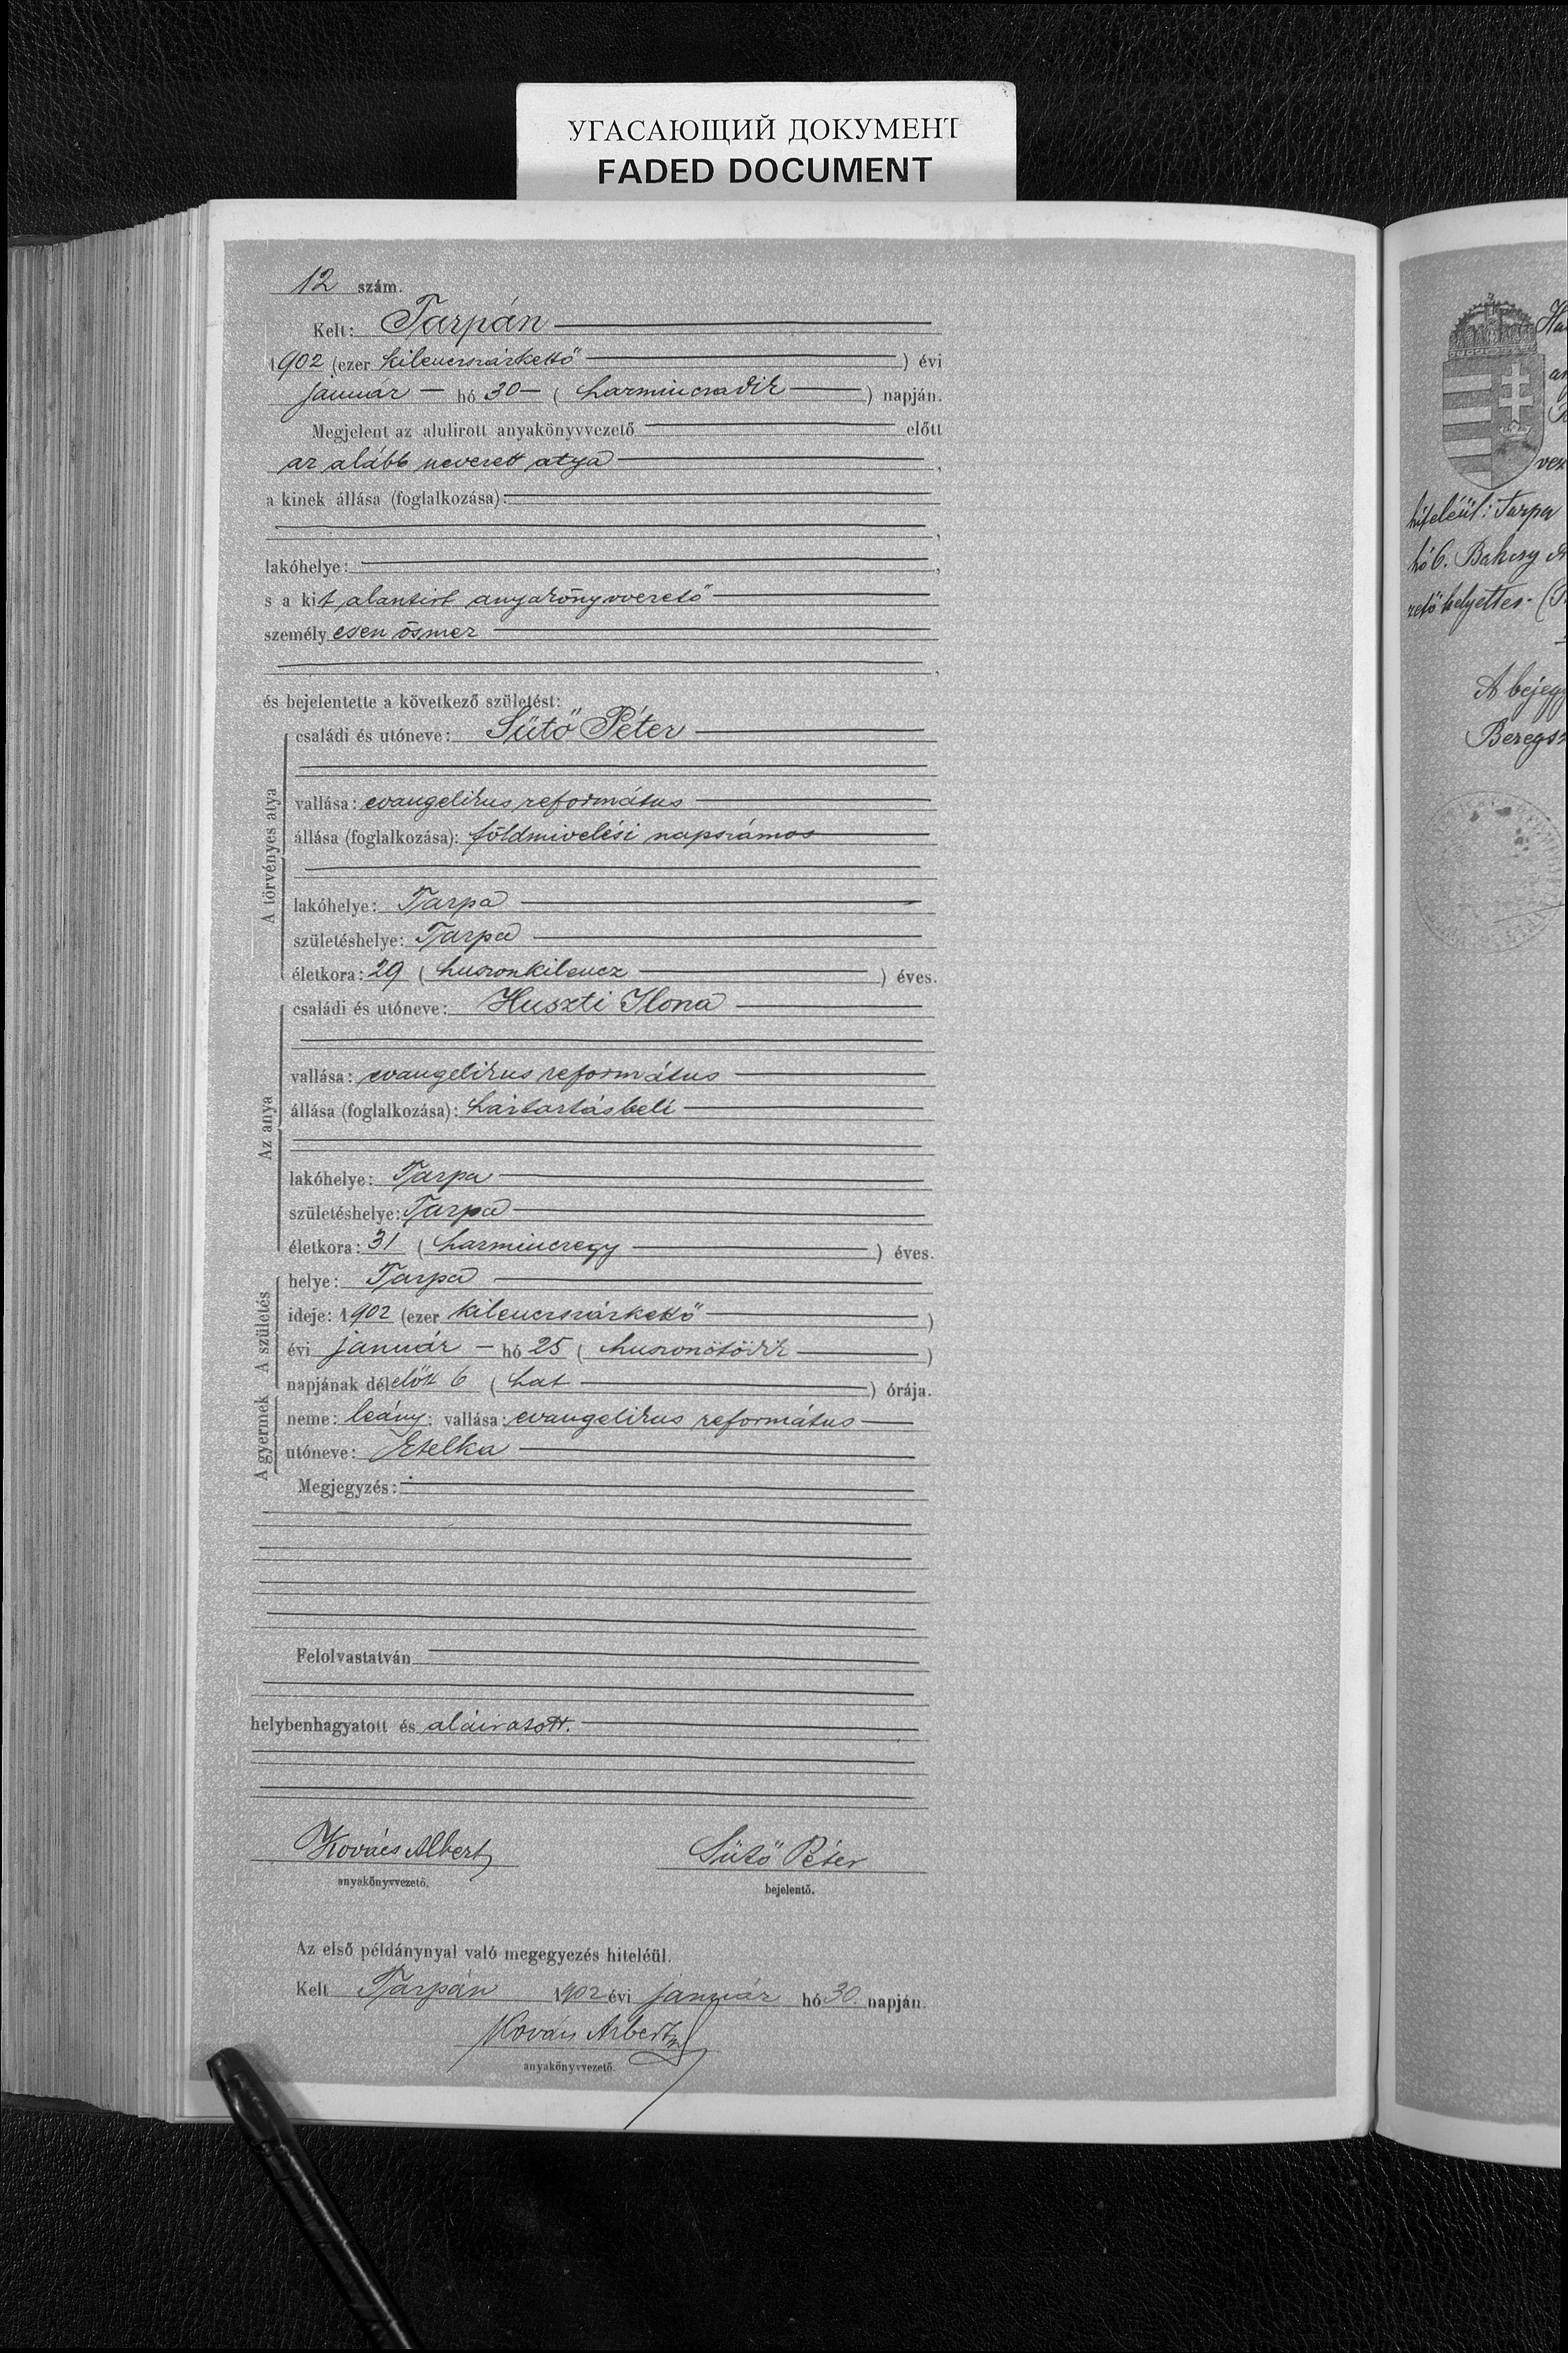 УГАСАЮЩИЙ ДОКУМЕНТ
FADED DOCUMENT
12 szám.
Kelt: Tarpán
1902 (ezer kilencszázkettő) évi
január hó 30 (harminczadik) napján.
Megjelent az alulirott anyakönyvvezető előtt
az alább nevezett atya,
a kinek állása (foglalkozása):
,
lakóhelye: ,
s a kit alantirt anyakönyvvezető
személyesen ösmer
,
és bejelentette a következő születést:
A törvényes atya
családi és utóneve: Sütő Péter
vallása: evangelikus református
állása (foglalkozása): földmivelési napszámos
lakóhelye: Tarpa
születéshelye: Tarpa
életkora: 29 (huszonkilencz) éves.
Az anya
családi és utóneve: Huszti Ilona
vallása: evangelikus református
állása (foglalkozása): háztartásbeli
lakóhelye: Tarpa
születéshelye: Tarpa
életkora: 31 (harminczegy) éves.
A születés
helye: Tarpa
ideje: 1902 (ezer kilencszázkettő)
évi január hó 25 (huszonötödik)
napjának délelőtt 6 (hat) órája.
A gyermek
neme: leány; vallása: evangelikus református
utóneve: Etelka
Megjegyzés:
Felolvastatván
helybenhagyatott és aláiratott.
Kovács Albert
anyakönyvvezető.
Sütő Péter
bejelentő.
Az első példánynyal való megegyezés hiteléül.
Kelt Tarpán 1902 évi január hó 30. napján.
Kovács Albert
anyakönyvvezető.
hiteléül: Tarpa
hó 6. Bakcsy
zető helyettes. (
A bejegy
Beregsz